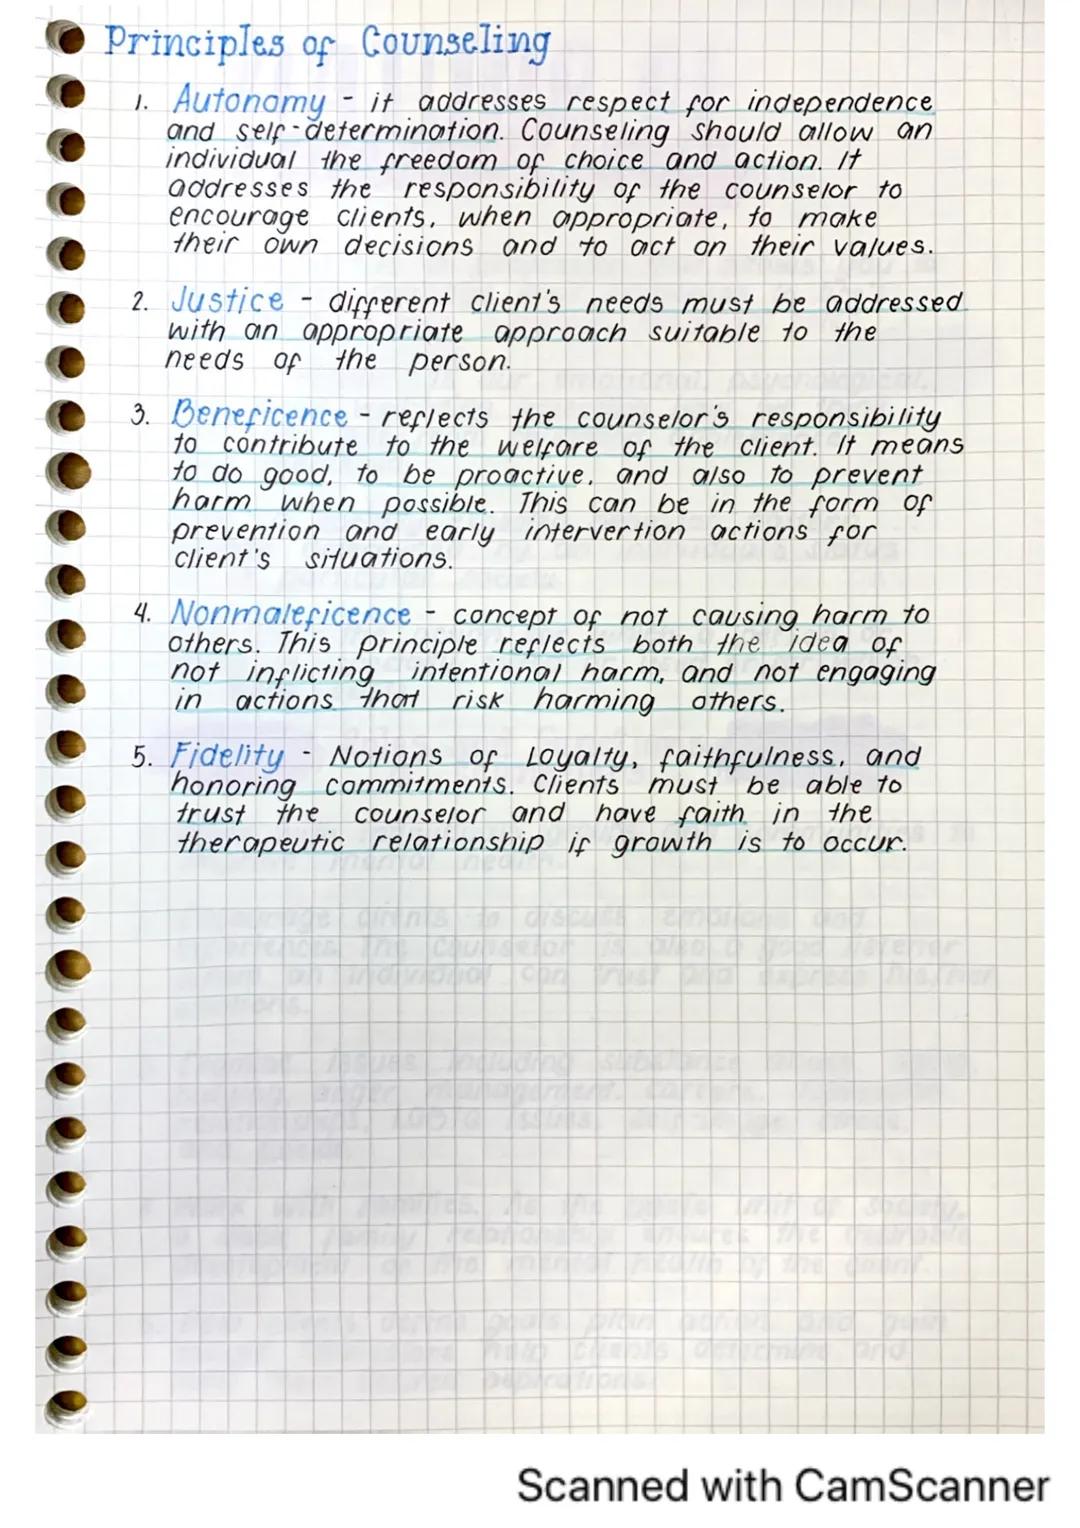 Principles of Counseling
1. Autonomy - it addresses respect for independence
and self-determination. Counseling should allow an
individual the freedom of choice and action. It
addresses the responsibility of the counselor to
encourage clients, when appropriate, to make
their own decisions and to act on their values.
2. Justice - different client's needs must be addressed
with an appropriate approach suitable to the
needs of the person.
3. Beneficence - reflects the counselor's responsibility
to contribute to the welfare of the client. It means
to do good, to be proactive, and also to prevent
harm when possible. This can be in the form of
prevention and early intervertion actions for
client's situations.
4. Nonmaleficence - concept of not causing harm to
others. This principle reflects both the idea of
not inflicting intentional harm, and not engaging
in actions that risk harming others.
5. Fidelity - Notions of Loyalty, faithfulness, and
honoring commitments. Clients must be able to
trust the counselor and have faith in the
therapeutic relationship if growth is to occur.
Scanned with CamScanner